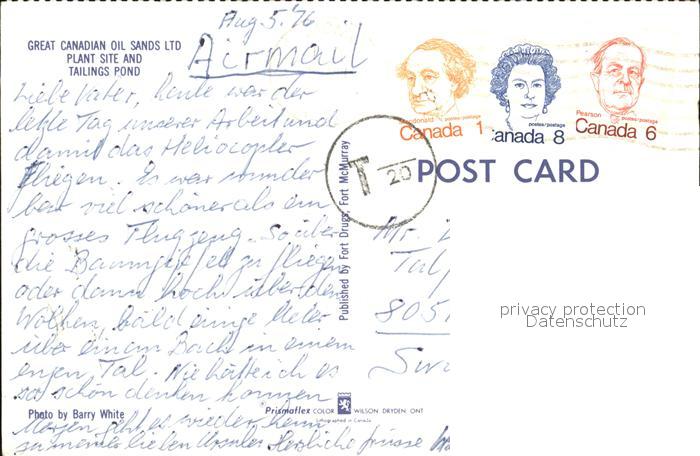 Aug. 5. 76
Airmail
GREAT CANADIAN OIL SANDS LTD
PLANT SITE AND
TAILINGS POND
Liebe Vater, heute war der
letzte Tag unserer Arbeit und
damit das Heliocopter
fliegen. Es war wunder
bar viel schöner als ein
grosses Flugzeug. So über
die Baumgipfel zu fliegen
oder dann hoch über den
Wolken, bald einige Meter
über einem Bach in einem
engen Tal. Nie hätte ich es
so schön denken können
Morgen geht es wieder heim
zu meiner lieben Ursula. Herzliche Grüsse
Photo by Barry White
Published by Fort Drugs, Fort McMurray
Prismaflex COLOR WILSON DRYDEN, ONT
Lithographed in Canada
T 20
postes/postage
Canada 1
postes/postage
Canada 8
Pearson postes/postage
Canada 6
POST CARD
Mr.
Tal
805
Swi
privacy protection
Datenschutz